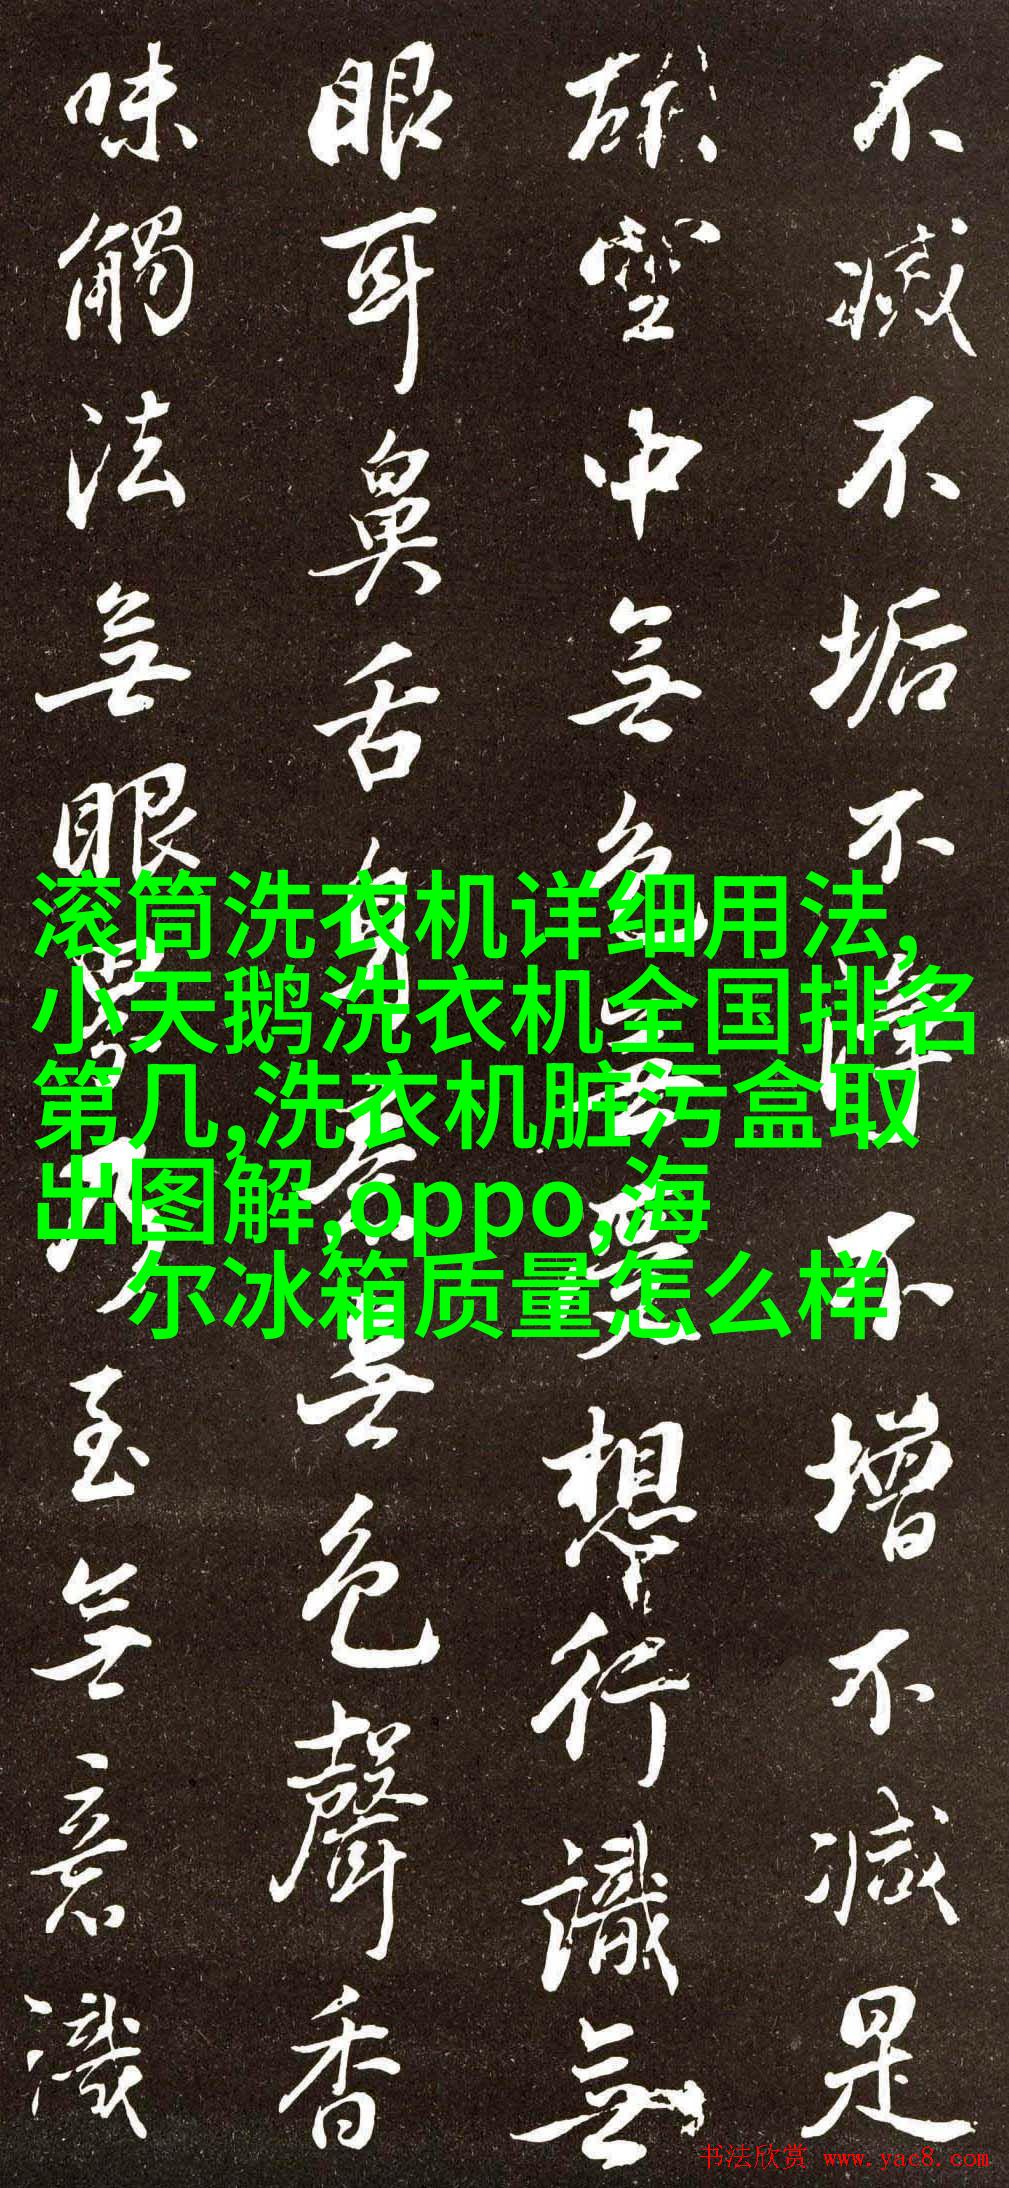 不滅不垢不淨不增不減是
故空中無色無受想行識無
眼耳鼻舌身意無色聲香
味觸法無眼界乃至無意識
滚筒洗衣机详细用法,
小天鹅洗衣机全国排名
第几,洗衣机脏污盒取
出图解,oppo,海
尔冰箱质量怎么样
书法欣赏 www.yac8.com